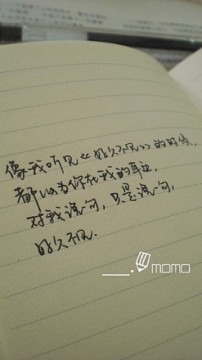 像我听见《好久不见》的时候,
都以为你在我的耳边,
对我说一句,只是说一句,
好久不见.
momo